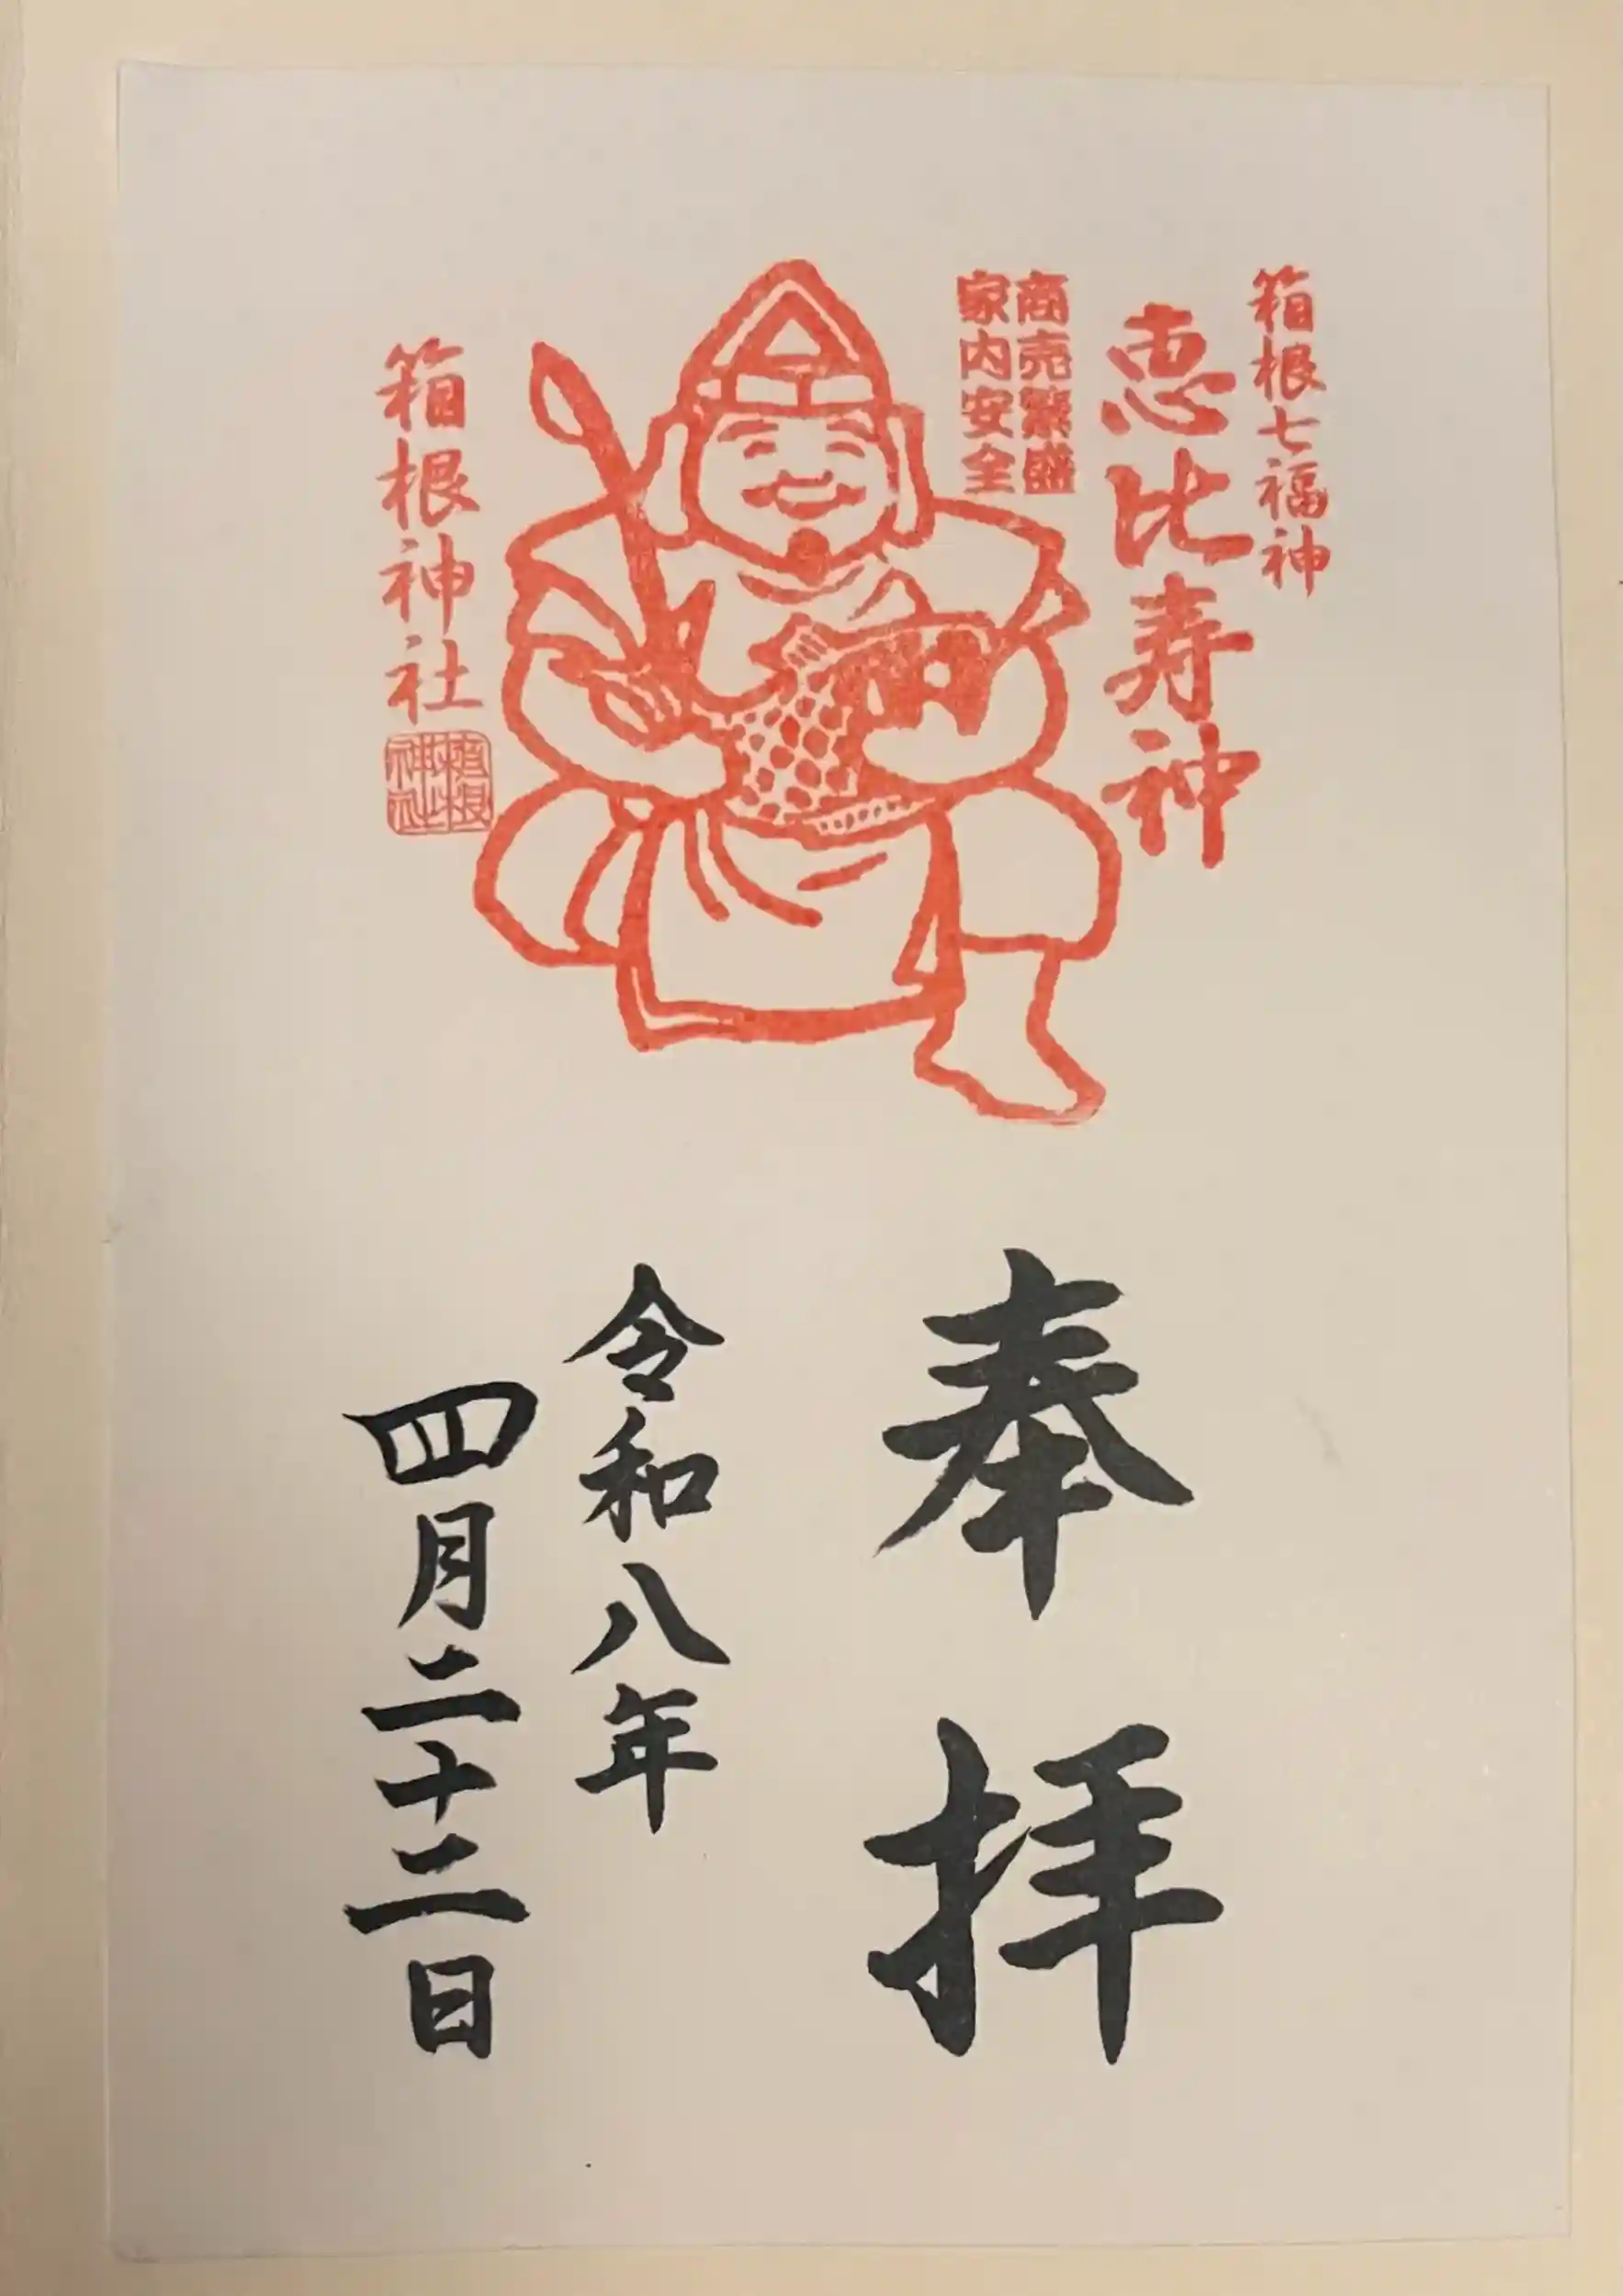 箱根七福神
恵比寿神
商売繁盛
家内安全
箱根神社
箱根
神社
奉拝
令和八年
四月二十二日